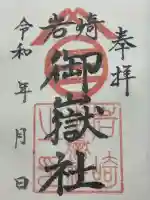 奉拝
岩崎
御嶽社
令和 年 月 日